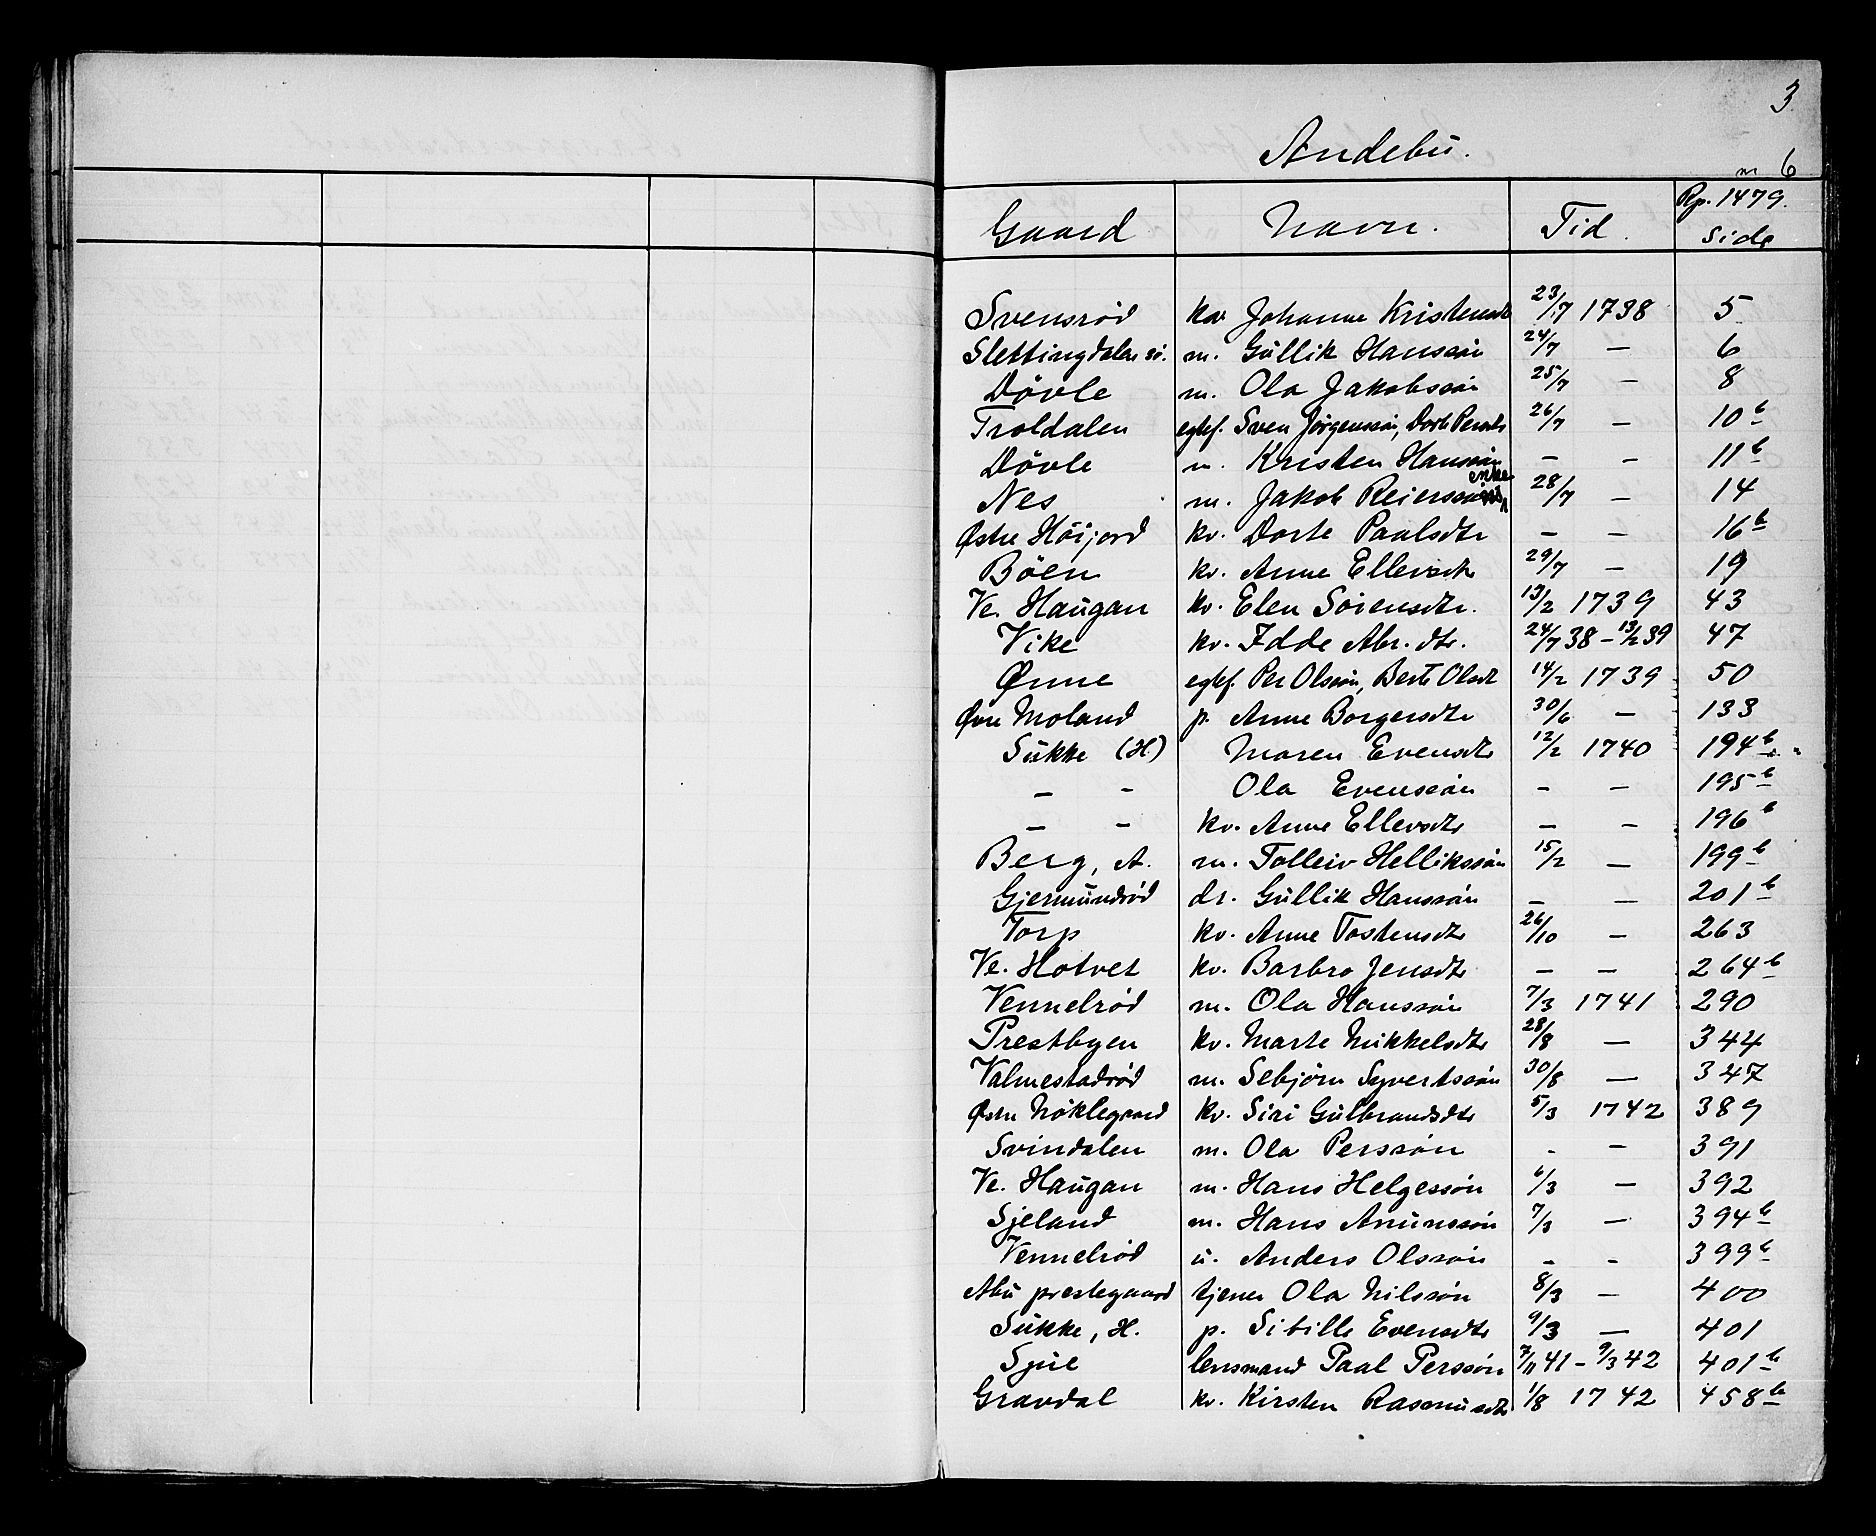 3
Andebu.
nr 6
Gaard Navn. Tid. Rp. 1479. Side
Svensrød kv. Johanne Kristensdt 23/7 1738 5
Slettingdalen sø. m. Gullik Hanssøn 24/7 — 6
Døvle m. Ola Jakobssøn 25/7 — 8
Troldalen egtef. Sven Jørgenssøn, Dorte Persdt 26/7 — 10b
Døvle m. Kristen Hanssøn — — 11b
Nes m. Jakob Reierssøn enke 28/7 — 14
Østre Høijord kv. Dorte Paalsdtr — — 16b
Böen kv. Anne Ellevsdtr 29/7 — 19
Ve. Haugan kv. Elen Sörensdtr. 13/2 1739 43
Vike kv. Idde Abr.dtr. 24/7 38 – 13/2 39 47
Ønne egtef. Per Olssøn, Berte Olsdt 14/2 1739 50
Øvre Moland p. Anne Borgersdtr 30/6 — 133
Sukke (H.) Maren Evensdtr 12/2 1740 194b
— - Ola Evenssøn - — 195b
— — kv. Anne Ellevsdtr — — 196b
Berg, A. m. Tolleiv Hellikssøn 15/2 — 199b
Gjermundrød dr. Gullik Hanssøn — — 201b
Torp kv. Anne Tostensdtr 26/10 — 263
Ve. Hotvet kv. Barbro Jensdtr — — 264b
Vennelrød m. Ola Hanssøn 7/3 1741 290
Prestbyen kv. Marte Mikkelsdtr 28/8 — 344
Valmestadrød m. Sebjørn Syvertssøn 30/8 — 347
Østre Nøklegaard kv. Siri Gulbrandsdtr 5/3 1742 389
Svindalen m. Ola Perssøn - — 391
Ve. Haugan m. Hans Helgessøn 6/3 — 392
Sjeland m. Hans Anunssøn 7/3 — 394b
Vennelrød u. Anders Olssøn — - 399b
Abu prestegaard tjener Ola Nilssøn 8/3 — 400
Sukke, H. p. Sibille Evensdtr 9/3 — 401
Spie lensmand Paal Perssøn 7/11 41 – 9/3 42 401b
Gravdal kv. Kirsten Rasmusdtr 1/8 1742 458b